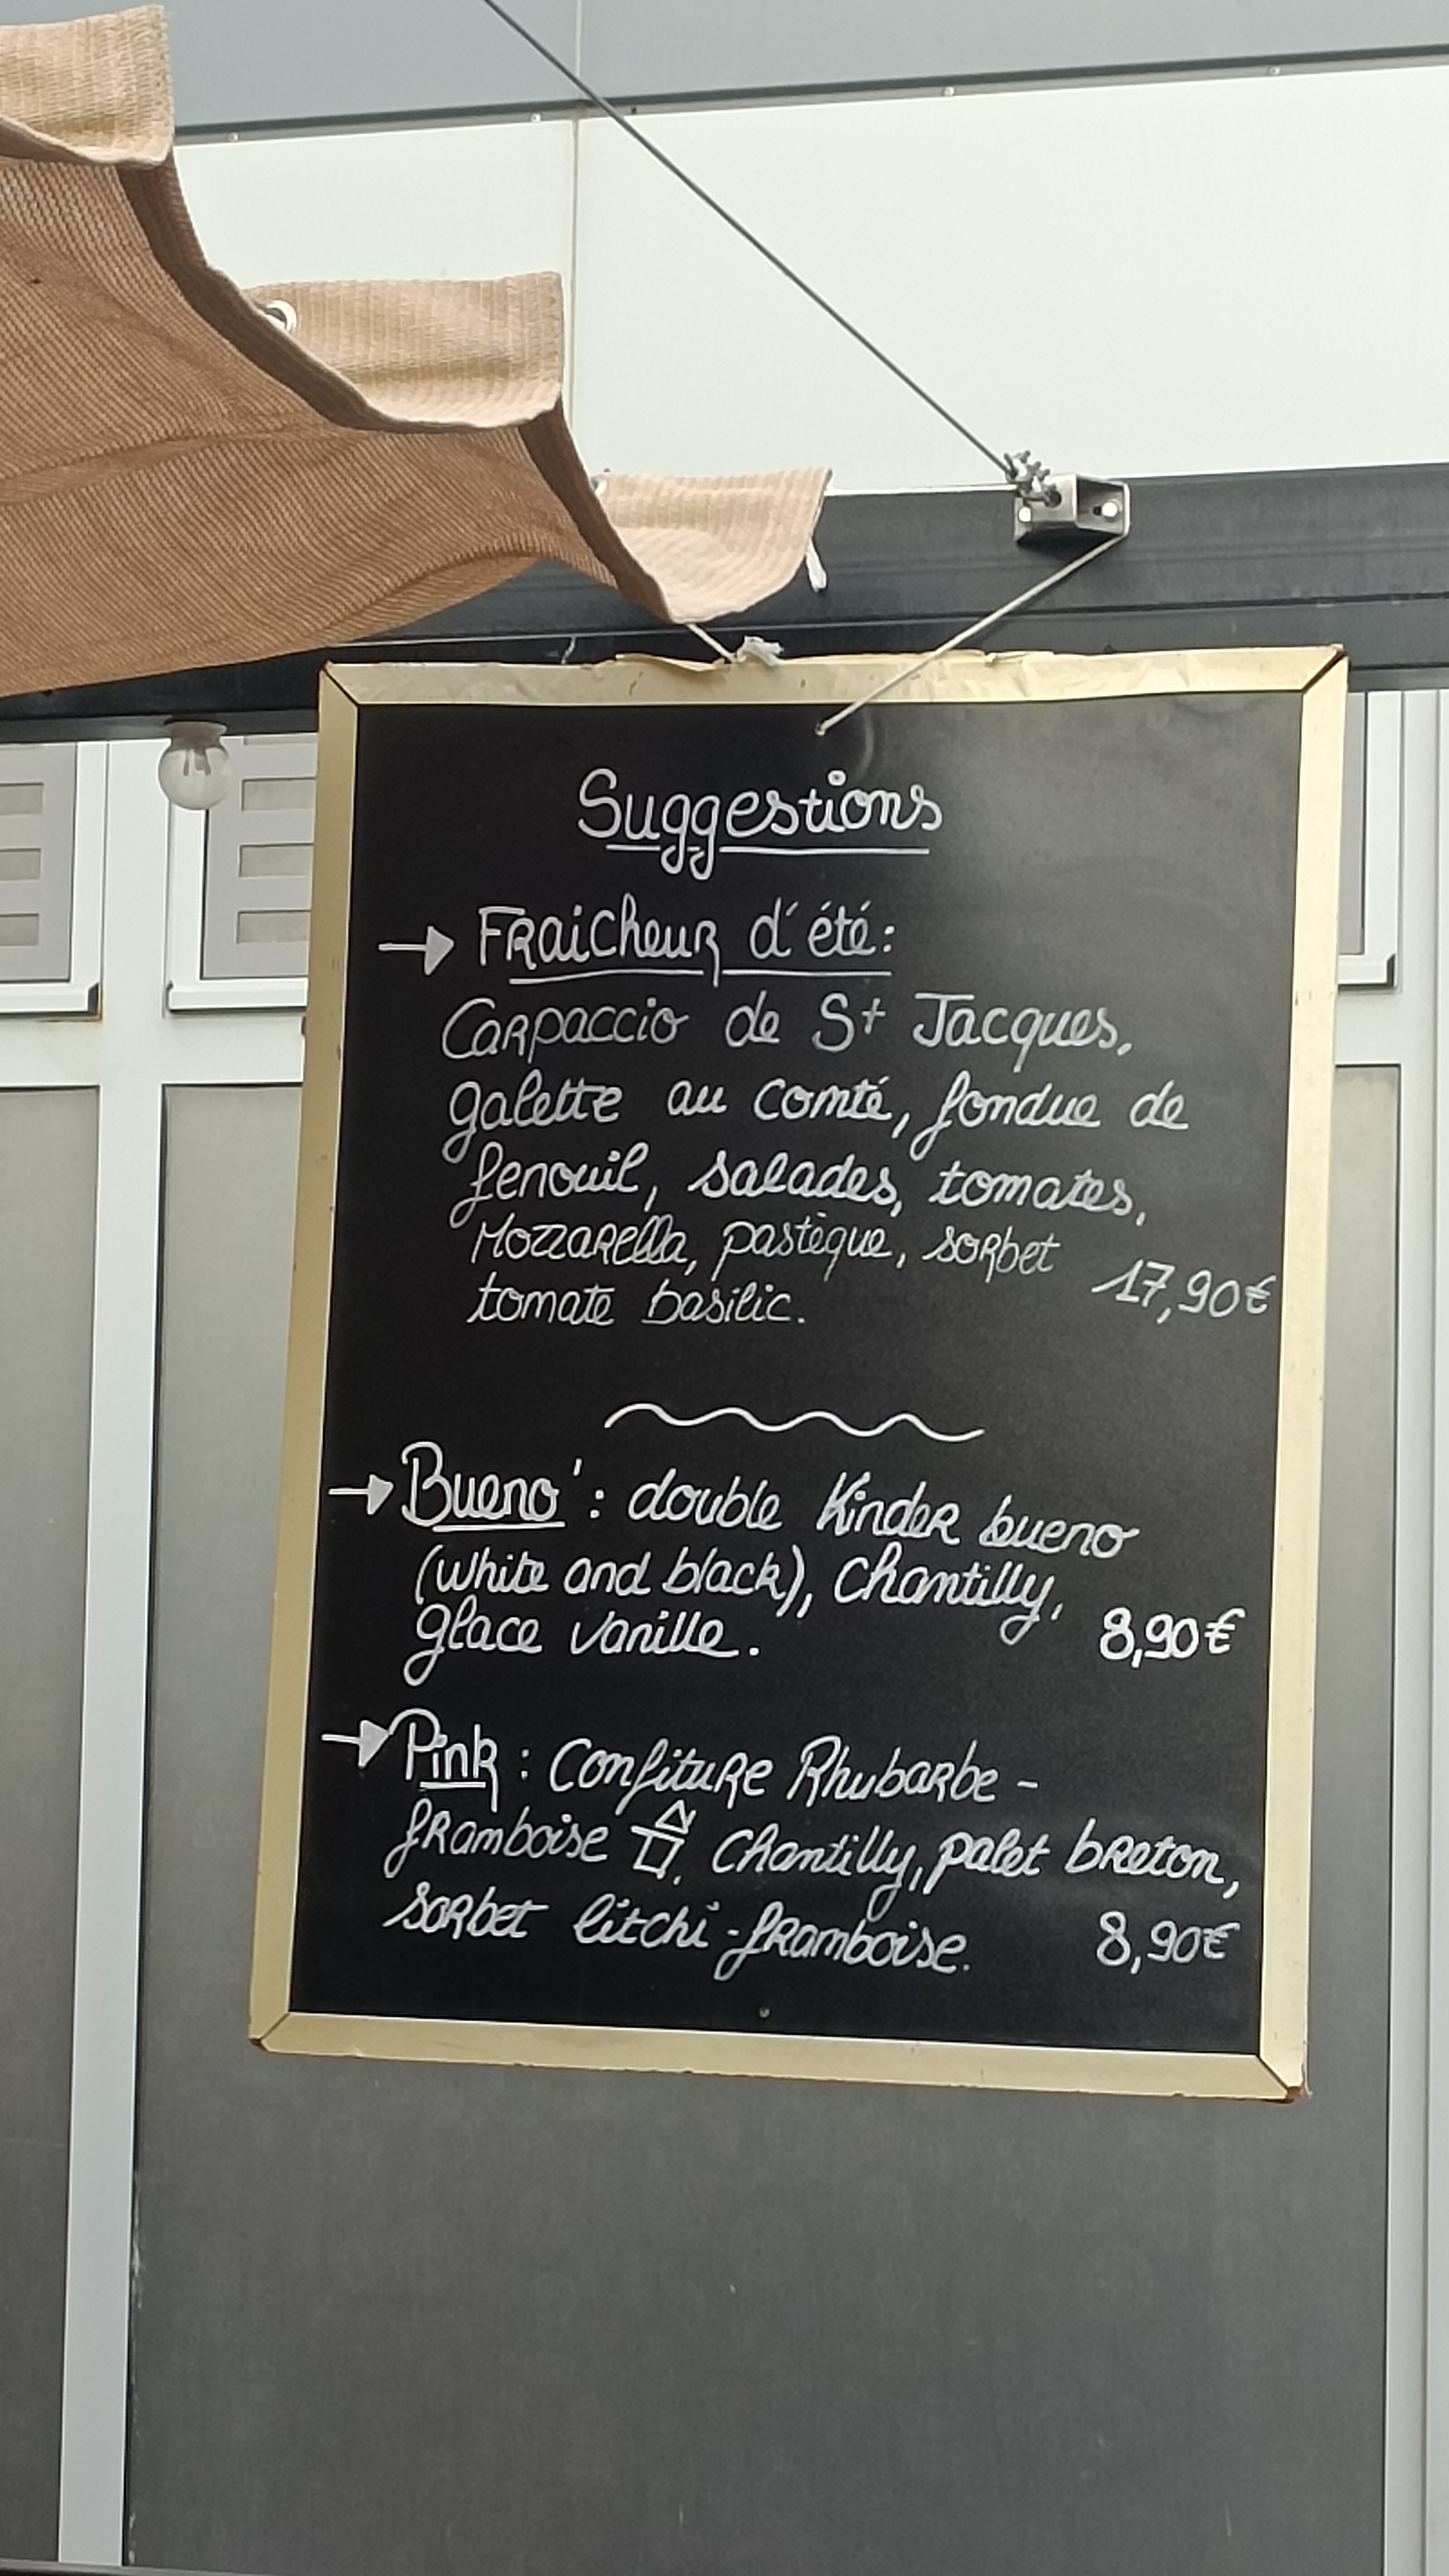 Suggestions
Fraicheur d'été:
Carpaccio de St Jacques,
galette au comté, fondue de
fenouil, salades, tomates,
Mozzarella, pastèque, sorbet
tomate basilic. 17,90€
Bueno': double Kinder bueno
(white and black), Chantilly,
glace vanille. 8,90€
Pink: Confiture Rhubarbe-
framboise, Chantilly, palet breton,
sorbet litchi-framboise. 8,90€